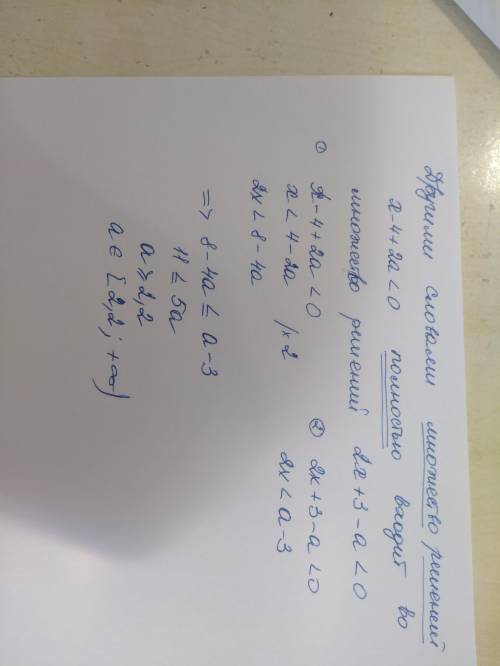 Другими словами множество решений
x-4+2a<0 полностью входит во
множество решений 2x+3-a<0
① x-4+2a<0 ② 2x+3-a<0
x<4-2a /×2 2x<a-3
2x<8-4a
=> 8-4a≤a-3
11≤5a
a⩾2,2
a∈[2,2;+∞)